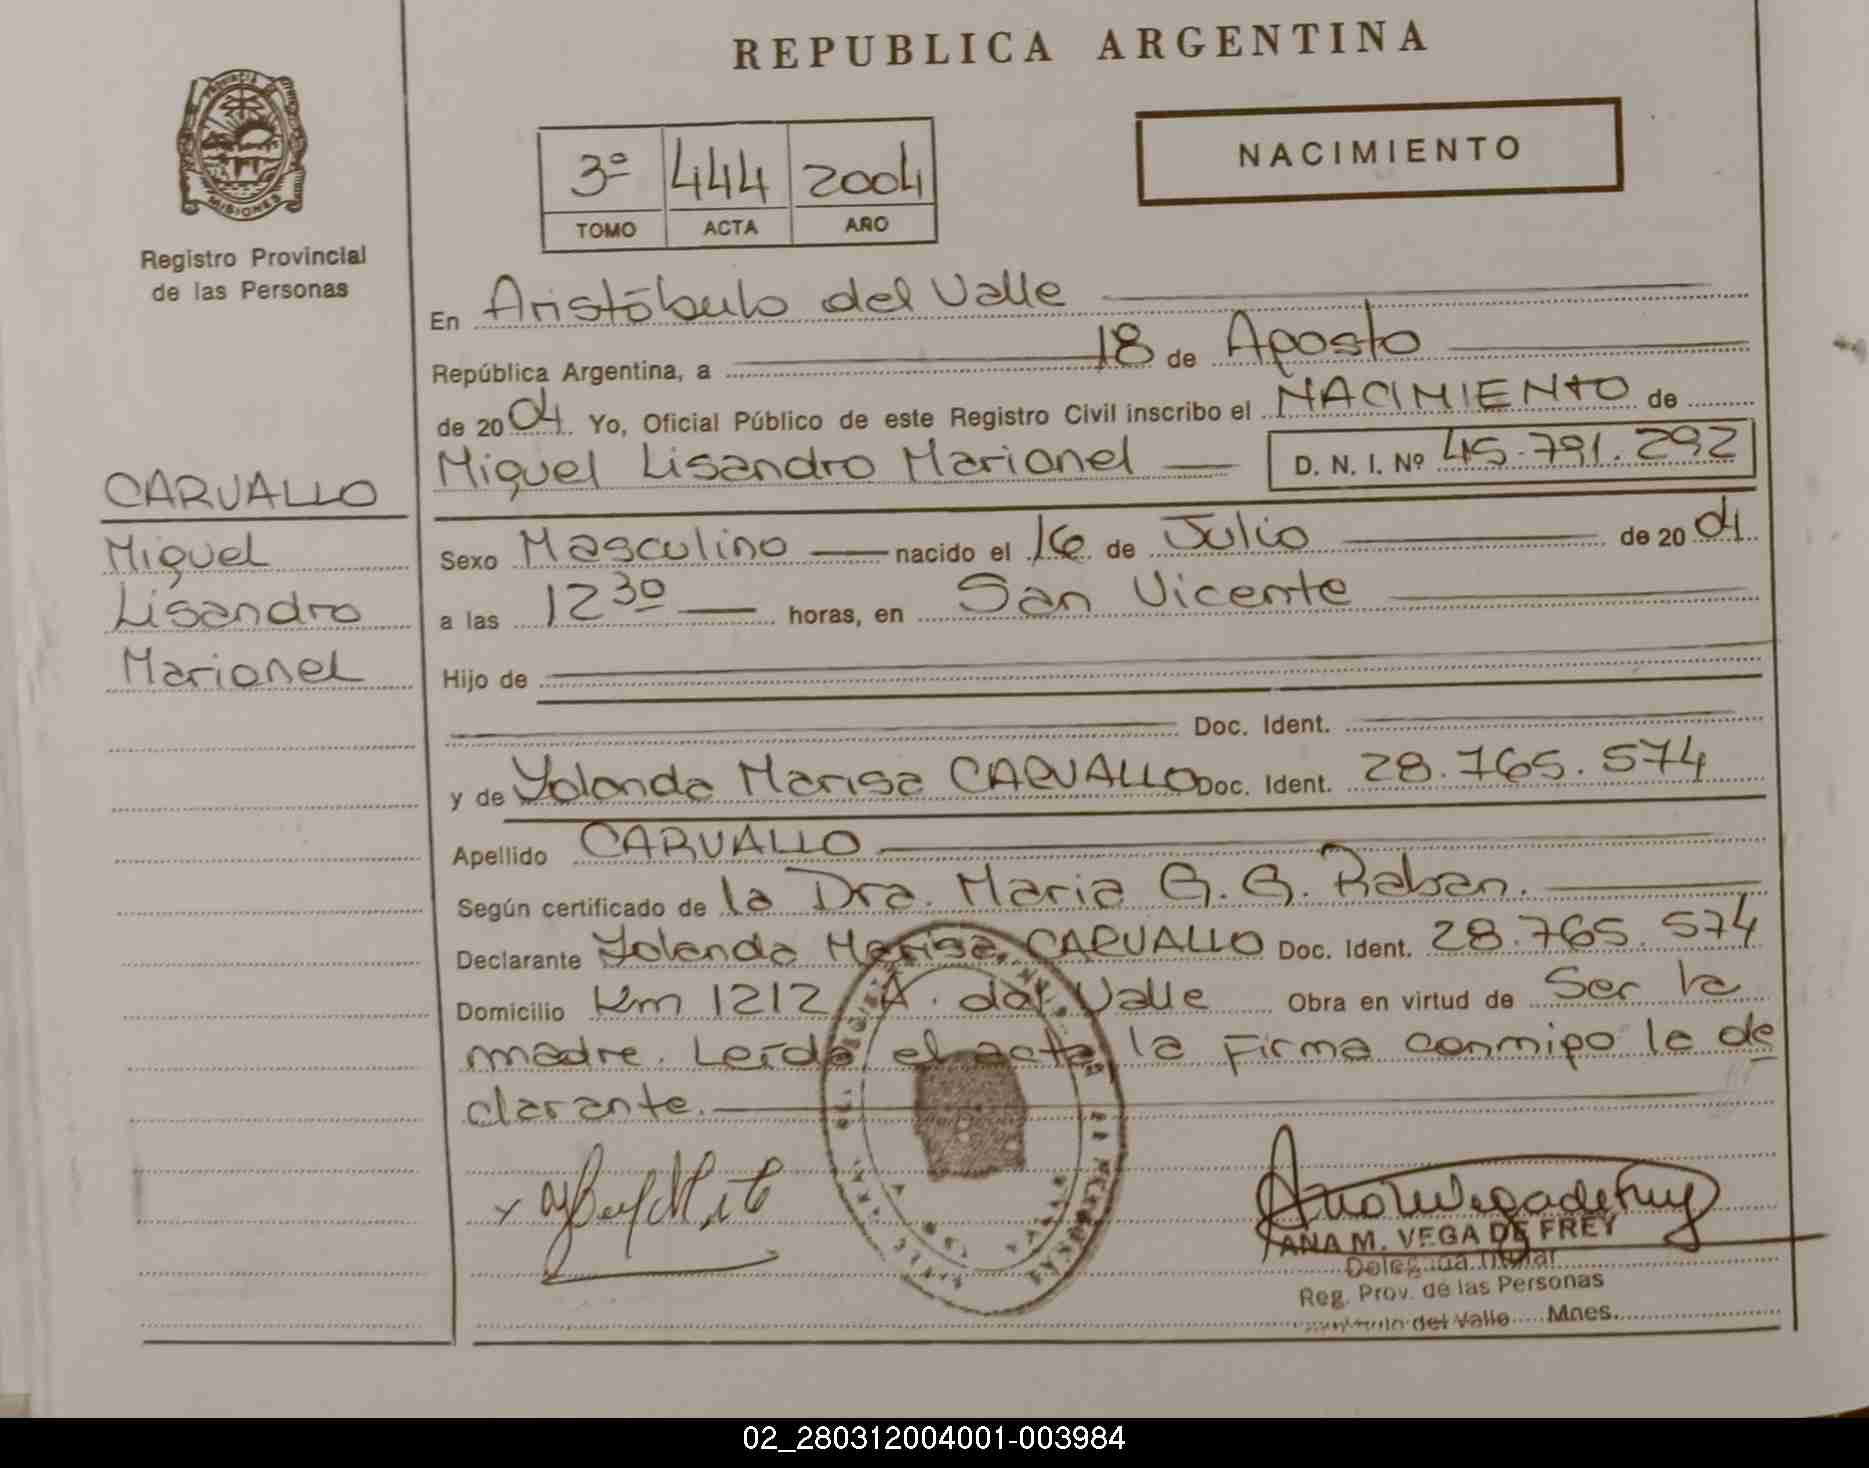 REPUBLICA ARGENTINA
MISIONES
Registro Provincial
de las Personas
3º 444 2004
TOMO ACTA AÑO
NACIMIENTO
CARVALLO
Miguel
Lisandro
Marionel
En Aristóbulo del Valle
República Argentina, a 18 de Agosto
de 2004. Yo, Oficial Público de este Registro Civil inscribo el NACIMIENTO de
Miguel Lisandro Marionel D. N. I. Nº 45.791.292
Sexo Masculino nacido el 16 de Julio de 2004
a las 12 30 horas, en San Vicente
Hijo de
Doc. Ident.
y de Yolanda Marisa CARVALLO Doc. Ident. 28.765.574
Apellido CARVALLO
Según certificado de la Dra. Maria G. G. Raban.
Declarante Yolanda Marisa CARVALLO Doc. Ident. 28.765.574
Domicilio Km 1212 A. del Valle Obra en virtud de Ser la
madre. Leída el acta la Firma conmigo la de
clarante.
ANA M. VEGA DE FREY
Delegada Titular
Reg. Prov. de las Personas
del Valle Mnes.
02_280312004001-003984